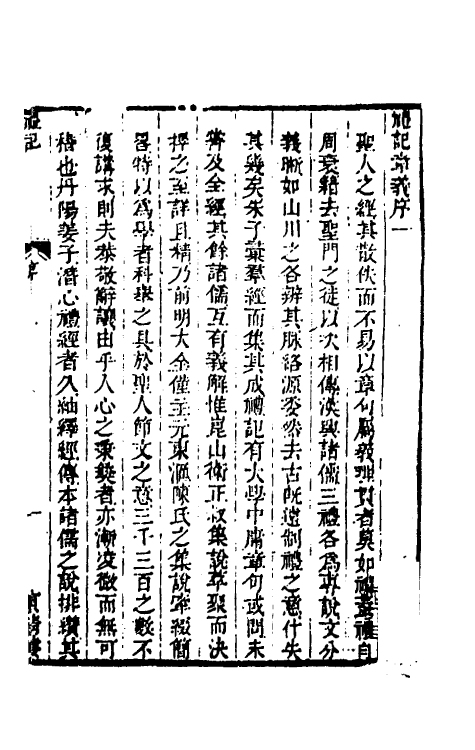 禮記章義序一
聖人之經其散佚而不易以章句屬義理貫者莫如禮蓋禮自
周衰籍去聖門之徒以次相傳漢興諸儒三禮各為專說文分
義晰如山川之各辨其脈絡源委然去古旣遠制禮之意什失
其幾矣朱子彙羣經而集其成禮記有大學中庸章句或問未
嘗及全經其餘諸儒互有義解惟崑山衛正叔集說萃聚而決
擇之至詳且精乃前明大全僅主元東滙陳氏之集說率綴簡
畧特以為學者科舉之具於聖人節文之意三千三百之數不
復講求則夫恭敬辭讓由乎人心之秉彝者亦漸浸微而無可
稽也丹陽姜子潛心禮經者久紬繹經傳本諸儒之說排纘其
禮記
序
一